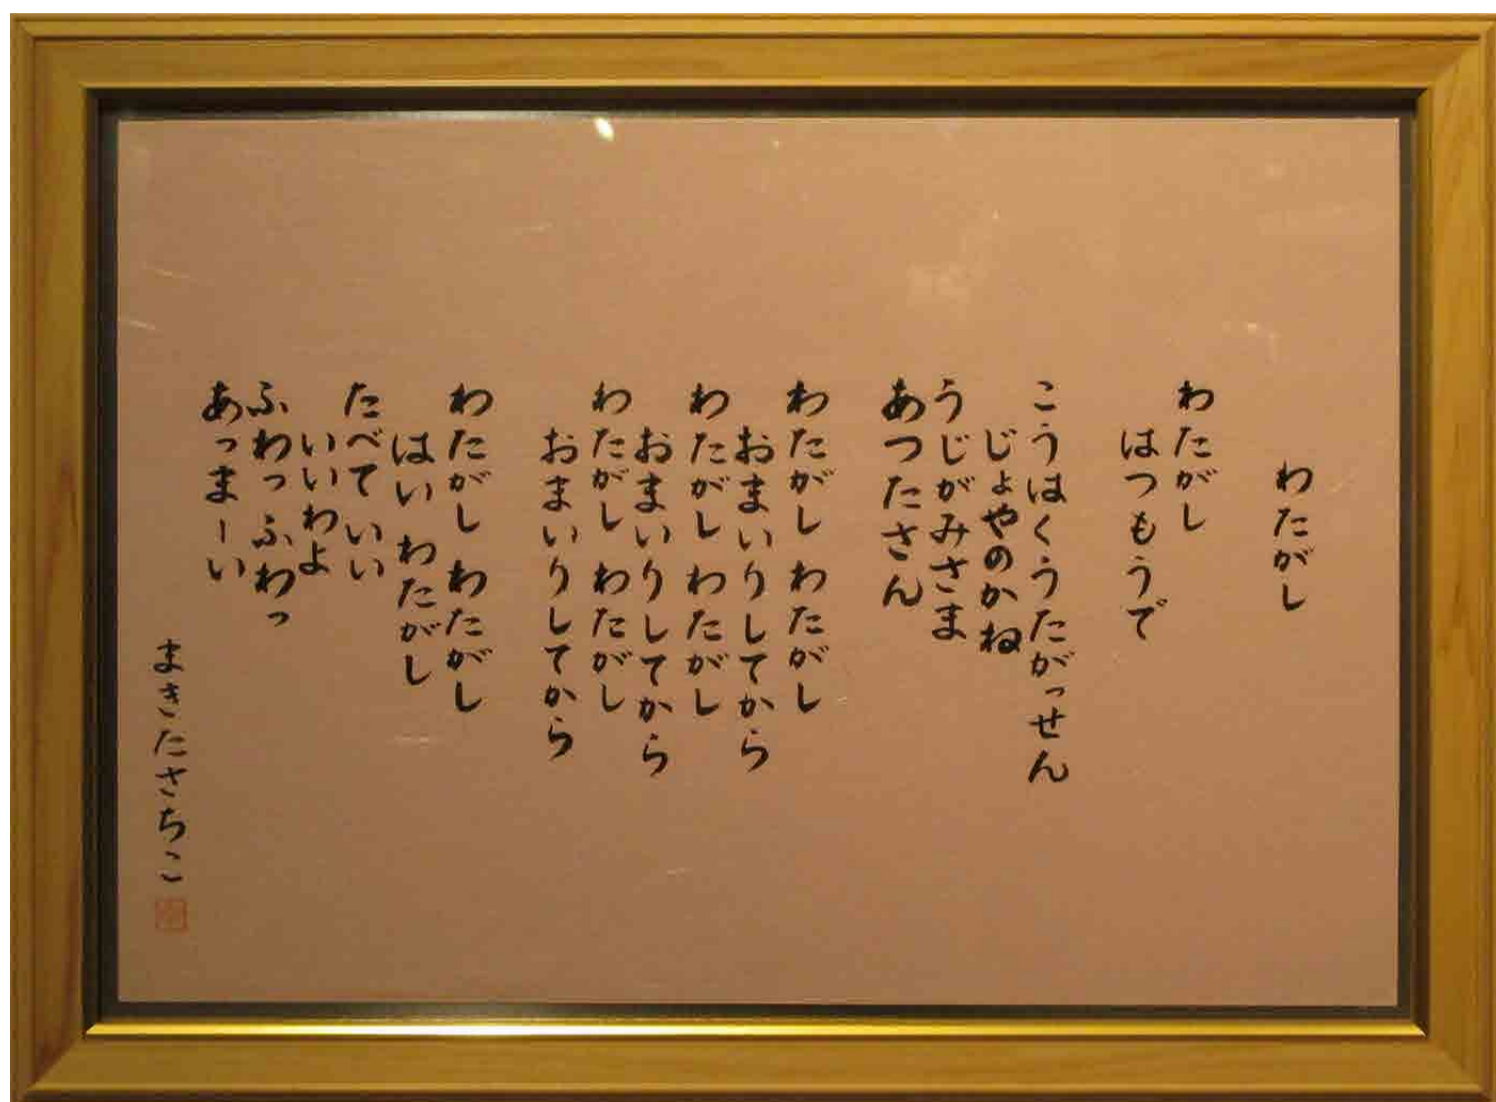 わたがし
わたがし
はつもうで
こうはくうたがっせん
じょやのかね
うじがみさま
あつたさん
わたがし わたがし
おまいりしてから
わたがし わたがし
おまいりしてから
わたがし わたがし
おまいりしてから
わたがし わたがし
はい わたがし
たべて いい
いいわよ
ふわっ ふわっ
あっまーい
まきたさちこ